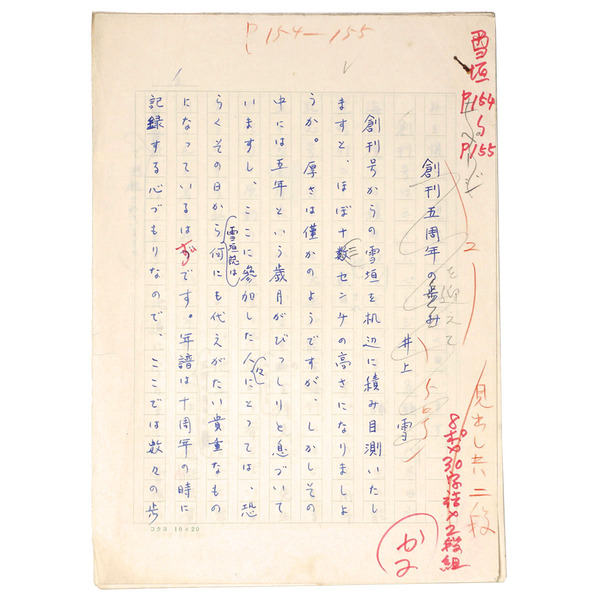 P154―155
雪垣
P154
P155
見出し共二段
8ポ×30字詰×2段組
創刊五周年の歩み
を迎えて
井上 雪
創刊号からの雪垣を机辺に積み目測いたし
ますと、ほぼ十数センチの高さになりましょ
うか。厚さは僅かのようですが、しかしその
中には五年という歳月がびっしりと息づいて
いますし、ここに參加した人々にとっては、恐
雪垣誌は
らくその日から何にも代えがたい貴重なもの
になっているはずです。年譜は十周年の時に
記録する心づもりなので、ここでは数々の歩
コクヨ 10×20